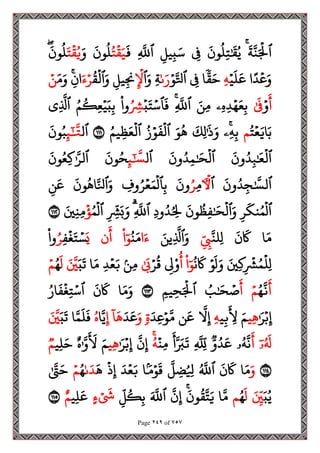 ٱلْجَنَّةَ ۚ يُقَٰتِلُونَ فِى سَبِيلِ ٱللَّهِ فَيَقْتُلُونَ وَيُقْتَلُونَ ۖ
وَعْدًا عَلَيْهِ حَقًّا فِى ٱلتَّوْرَىٰةِ وَٱلْإِنجِيلِ وَٱلْقُرْءَانِ ۚ وَمَنْ
أَوْفَىٰ بِعَهْدِهِۦ مِنَ ٱللَّهِ ۚ فَٱسْتَبْشِرُوا۟ بِبَيْعِكُمُ ٱلَّذِى
بَايَعْتُم بِهِۦ ۚ وَذَٰلِكَ هُوَ ٱلْفَوْزُ ٱلْعَظِيمُ ١١١ ٱلتَّٰٓئِبُونَ
ٱلْعَٰبِدُونَ ٱلْحَٰمِدُونَ ٱلسَّٰٓئِحُونَ ٱلرَّٰكِعُونَ
ٱلسَّٰجِدُونَ ٱلْءَامِرُونَ بِٱلْمَعْرُوفِ وَٱلنَّاهُونَ عَنِ
ٱلْمُنكَرِ وَٱلْحَٰفِظُونَ لِحُدُودِ ٱللَّهِ ۗ وَبَشِّرِ ٱلْمُؤْمِنِينَ ١١٢
مَا كَانَ لِلنَّبِىِّ وَٱلَّذِينَ ءَامَنُوٓا۟ أَن يَسْتَغْفِرُوا۟
لِلْمُشْرِكِينَ وَلَوْ كَانُوٓا۟ أُو۟لِى قُرْبَىٰ مِنۢ بَعْدِ مَا تَبَيَّنَ لَهُمْ
أَنَّهُمْ أَصْحَٰبُ ٱلْجَحِيمِ ١١٣ وَمَا كَانَ ٱسْتِغْفَارُ
إِبْرَٰهِيمَ لِأَبِيهِ إِلَّا عَن مَّوْعِدَةٍ وَعَدَهَآ إِيَّاهُ فَلَمَّا تَبَيَّنَ
لَهُۥٓ أَنَّهُۥ عَدُوٌّ لِّلَّهِ تَبَرَّأَ مِنْهُ ۚ إِنَّ إِبْرَٰهِيمَ لَأَوَّٰهٌ حَلِيمٌ
١١٤ وَمَا كَانَ ٱللَّهُ لِيُضِلَّ قَوْمًۢا بَعْدَ إِذْ هَدَىٰهُمْ حَتَّىٰ
يُبَيِّنَ لَهُم مَّا يَتَّقُونَ ۚ إِنَّ ٱللَّهَ بِكُلِّ شَىْءٍ عَلِيمٌ ١١٥
Page ٢٤٩ of ٧٥٧